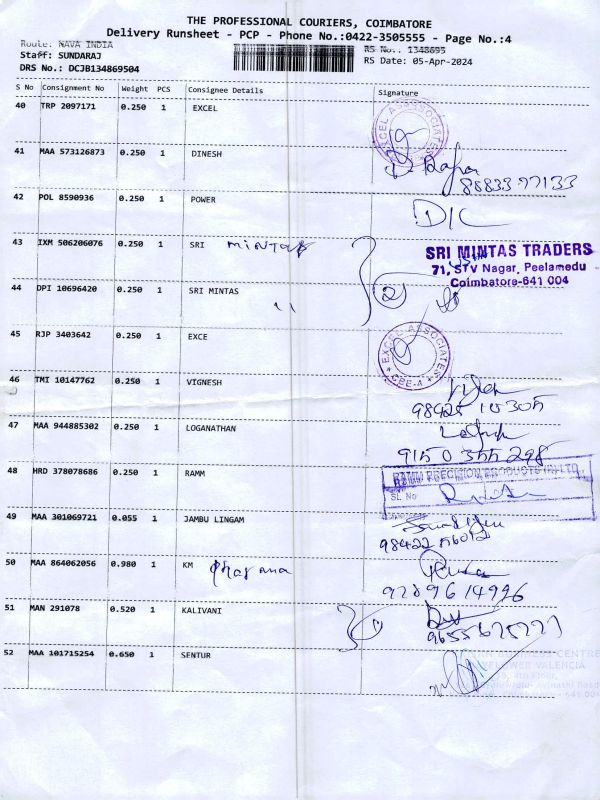 THE PROFESSIONAL COURIERS, COIMBATORE
Delivery Runsheet - PCP - Phone No.:0422-3505555 - Page No.:4
Route: NAVA INDIA RS No.: 1348695
Staff: SUNDARAJ RS Date: 05-Apr-2024
DRS No.: DCJB134869504
S No Consignment No Weight PCS Consignee Details Signature
40 TRP 2097171 0.250 1 EXCEL
EXCEL ASSOCIATES
41 MAA 573126873 0.250 1 DINESH
88833 77133
42 POL 8590936 0.250 1 POWER
D/C
43 IXM 506206076 0.250 1 SRI mintas
SRI MINTAS TRADERS
71, STV Nagar, Peelamedu
Coimbatore-641 004
44 DPI 10696420 0.250 1 SRI MINTAS
2
45 RJP 3403642 0.250 1 EXCE
EXCEL ASSOCIATES
CBE-4
46 TMI 10147762 0.250 1 VIGNESH
47 MAA 944885302 0.250 1 LOGANATHAN
9150 355 298
48 HRD 378078686 0.250 1 RAMM
PRECISION PRODUCTS (P) LTD
SL No
49 MAA 301069721 0.055 1 JAMBU LINGAM
50 MAA 864062056 0.980 1 KM
9789614996
51 MAN 291078 0.520 1 KALIVANI
52 MAA 101715254 0.650 1 SENTUR
CENTRE
VALENCIA